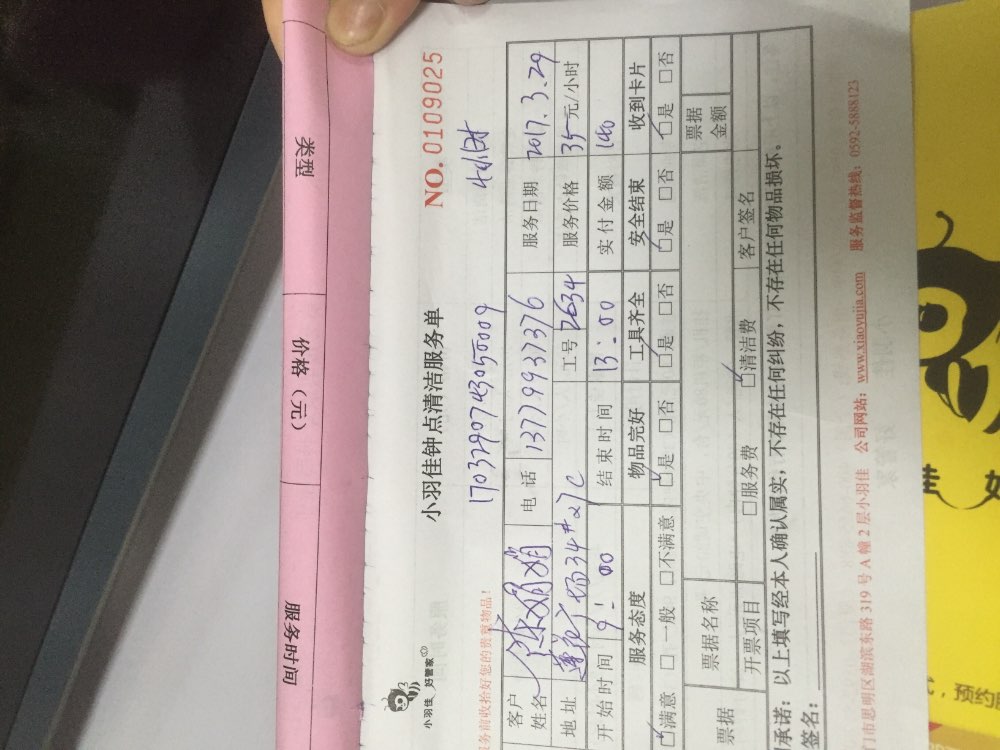 小羽佳钟点清洁服务单
NO. 0109025
小羽佳 好管家
1703290743050009 4小时
服务前收拾好您的贵重物品!
客户姓名 电话 13779937376 服务日期 2017.3.29
地址 莲花广场34#27C 工号 2634 服务价格 35元/小时
开始时间 9:00 结束时间 13:00 实付金额 140
服务态度 物品完好 工具齐全 安全结束 收到卡片
☑满意 □一般 □不满意 ☑是 □否 ☑是 □否 ☑是 □否 ☑是 □否
票据 票据名称 票据金额
开票项目 □服务费 ☑清洁费 客户签名
承诺:以上填写经本人确认属实,不存在任何纠纷,不存在任何物品损坏。
签名:
门市思明区湖滨东路 319 号 A 幢 2 层小羽佳 公司网站:www.xiaoyujia.com 服务监督热线:0592-5888123
类型 价格(元) 服务时间
佳
预约